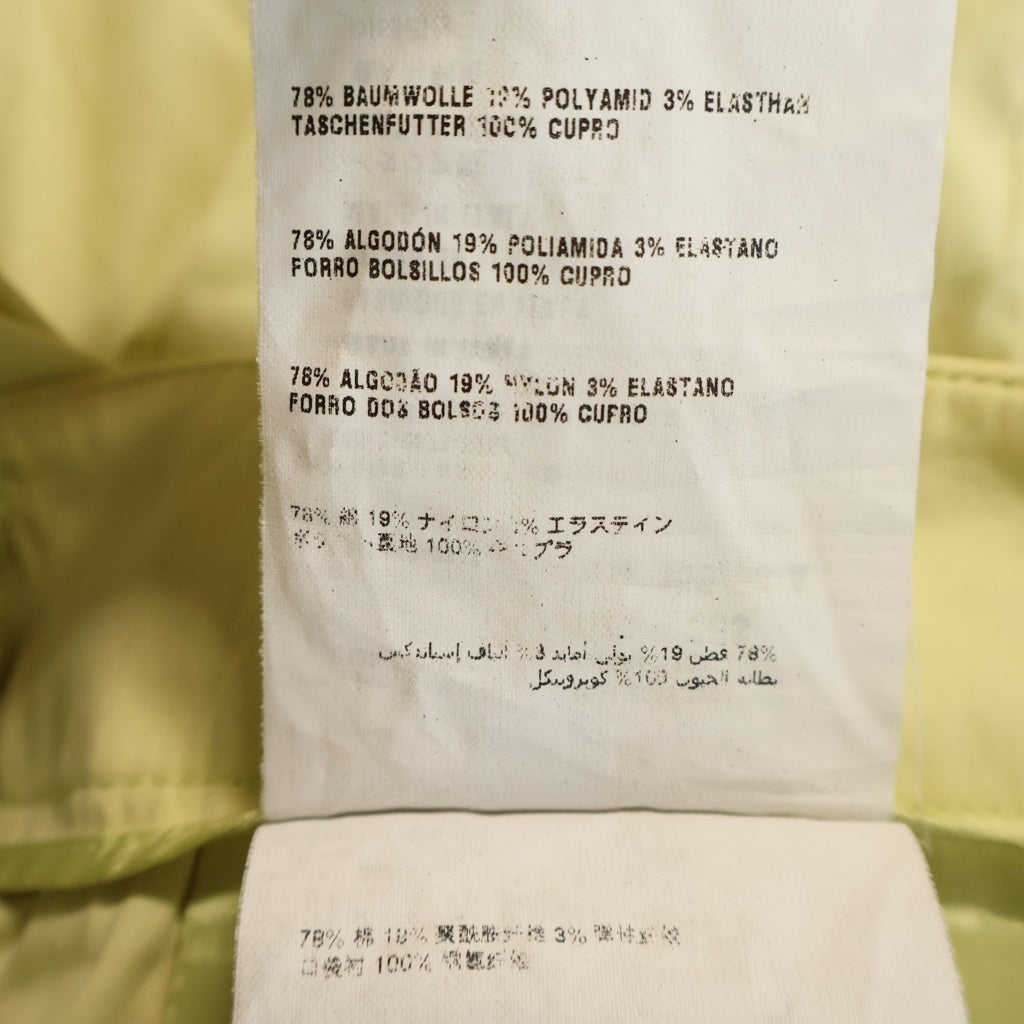 78% BAUMWOLLE 19% POLYAMID 3% ELASTHAN
TASCHENFUTTER 100% CUPRO
78% ALGODÓN 19% POLIAMIDA 3% ELASTANO
FORRO BOLSILLOS 100% CUPRO
78% ALGODÃO 19% NYLON 3% ELASTANO
FORRO DOS BOLSOS 100% CUPRO
78% 綿 19% ナイロン 3% エラステイン
裏地 100% キュプラ
78% قطن 19% بولي أمايد 3% ألياف
بطانة الجيوب 100%
78% 棉 19% 聚酰胺纤维 3% 弹性纤维
口袋衬 100%